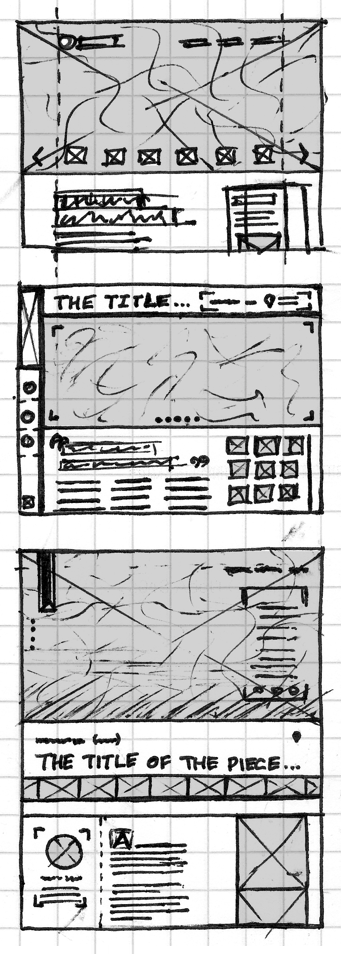 THE TITLE...
THE TITLE OF THE PIECE...
A